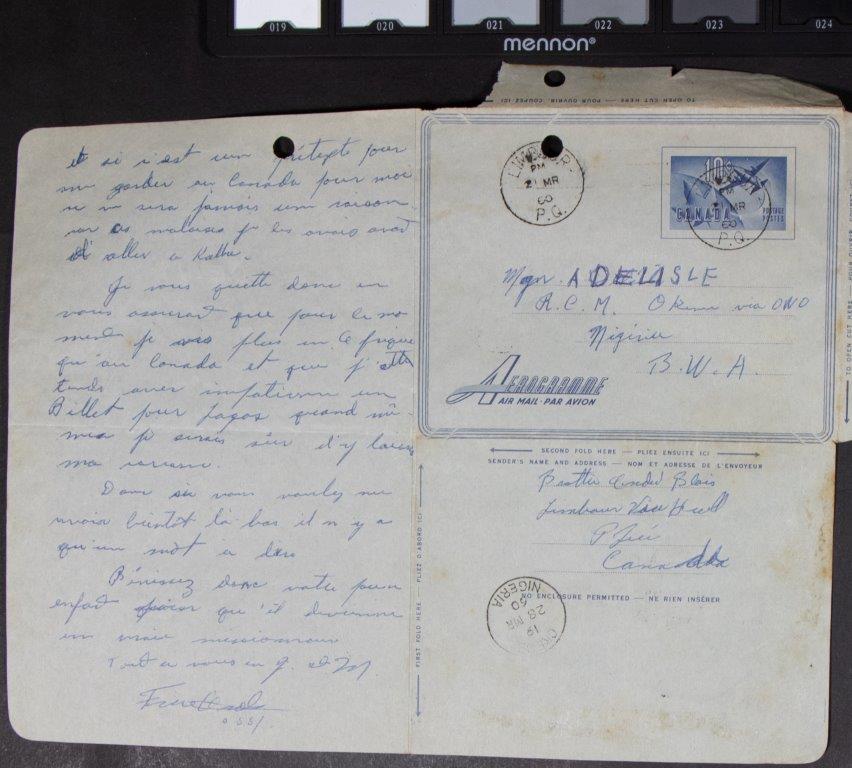 019 020 021 022 023 024
mennon®
et si c'est un prétexte pour
me garder au Canada pour moi
ce ne sera jamais une raison
car ces malaises je les avais avant
d'aller à Kabba.
Je vous quitte donc en
vous assurant que pour le mo
ment je suis plus en Afrique
qu'au Canada et que j'at
tends avec impatience un
Billet pour Lagos quand mê-
me je serais sûr d'y laisser
ma carcasse.
Donc si vous voulez me
revoir bientôt là bas il n'y a
qu'un mot à dire
Bénissez donc votre pauvre
enfant pour qu'il devienne
un vrai missionnaire
Tout à vous en J. et M
c.s.sp.
TO OPEN CUT HERE — POUR OUVRIR, COUPEZ ICI
LIMBOUR
PM
21 MR
60
P.Q.
10¢
CANADA
POSTAGE
POSTES
PM
MR
60
P.Q.
Mgr A DELISLE
R.C.M. Okene via ONO
Nigéria
B.W.A.
AEROGRAMME
AIR MAIL · PAR AVION
SECOND FOLD HERE — PLIEZ ENSUITE ICI
SENDER'S NAME AND ADDRESS — NOM ET ADRESSE DE L'ENVOYEUR
Brother André Blais
Limbour Hull
Canada
NO ENCLOSURE PERMITTED — NE RIEN INSÉRER
19
28 MR
60
NIGERIA
FIRST FOLD HERE — PLIEZ D'ABORD ICI